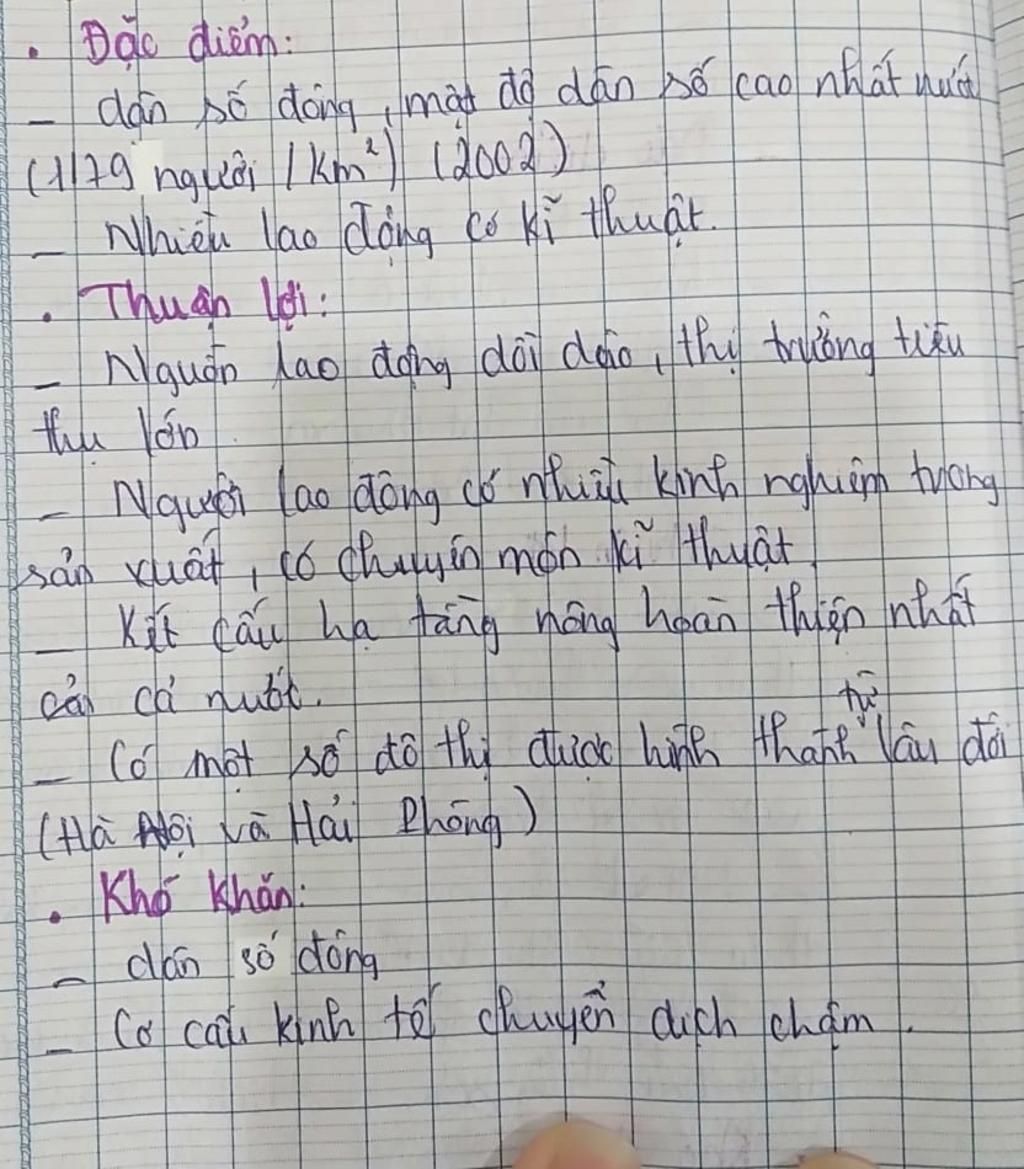 • Đặc điểm:
– dân số đông, mật độ dân số cao nhất nước
(1179 người /km²) (2002)
– Nhiều lao động có kĩ thuật.
• Thuận lợi:
– Nguồn lao động dồi dào, thị trường tiêu
thụ lớn
– Người lao động có nhiều kinh nghiệm trong
sản xuất, có chuyên môn kĩ thuật
– Kết cấu hạ tầng nông hoàn thiện nhất
cả nước.
từ
– Có một số đô thị được hình thành lâu đời
(Hà Nội và Hải Phòng)
• Khó khăn:
– dân số đông
– Cơ cấu kinh tế chuyển dịch chậm.